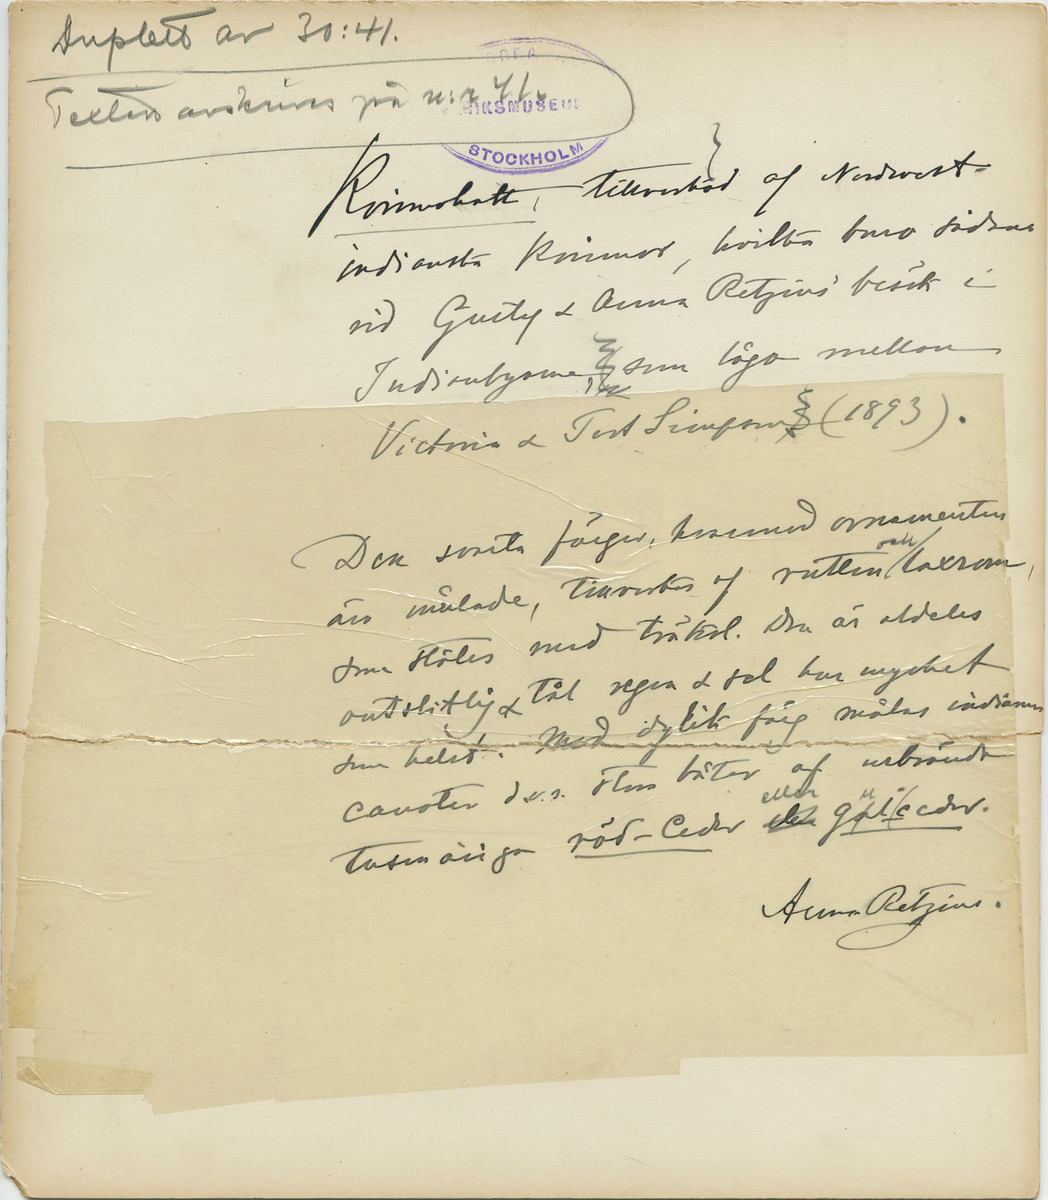 Duplett av 30:41.
Texten avskrives på n:r 41.
RIKSMUSEUM
STOCKHOLM
Kvinnohatt, tillverkad af Nordvest-
indianska kvinnor, hvilka buro sådana
vid Gustf & Anna Retzius' besök i
Indianbyarne, som lågo mellan
Victoria & Port Simpson (1893).
Den svarta färgen, hvarmed ornamenten
äro målade, tillverkas af rutten laxrom,
som stötes med träkol. Den är aldeles
outslitlig & tål regn & sol hur mycket
som helst. Med dylik färg målas indianernes
canoter d.v.s. stora båtar af urbrända
röd-Ceder eller gul ceder.
Anna Retzius.